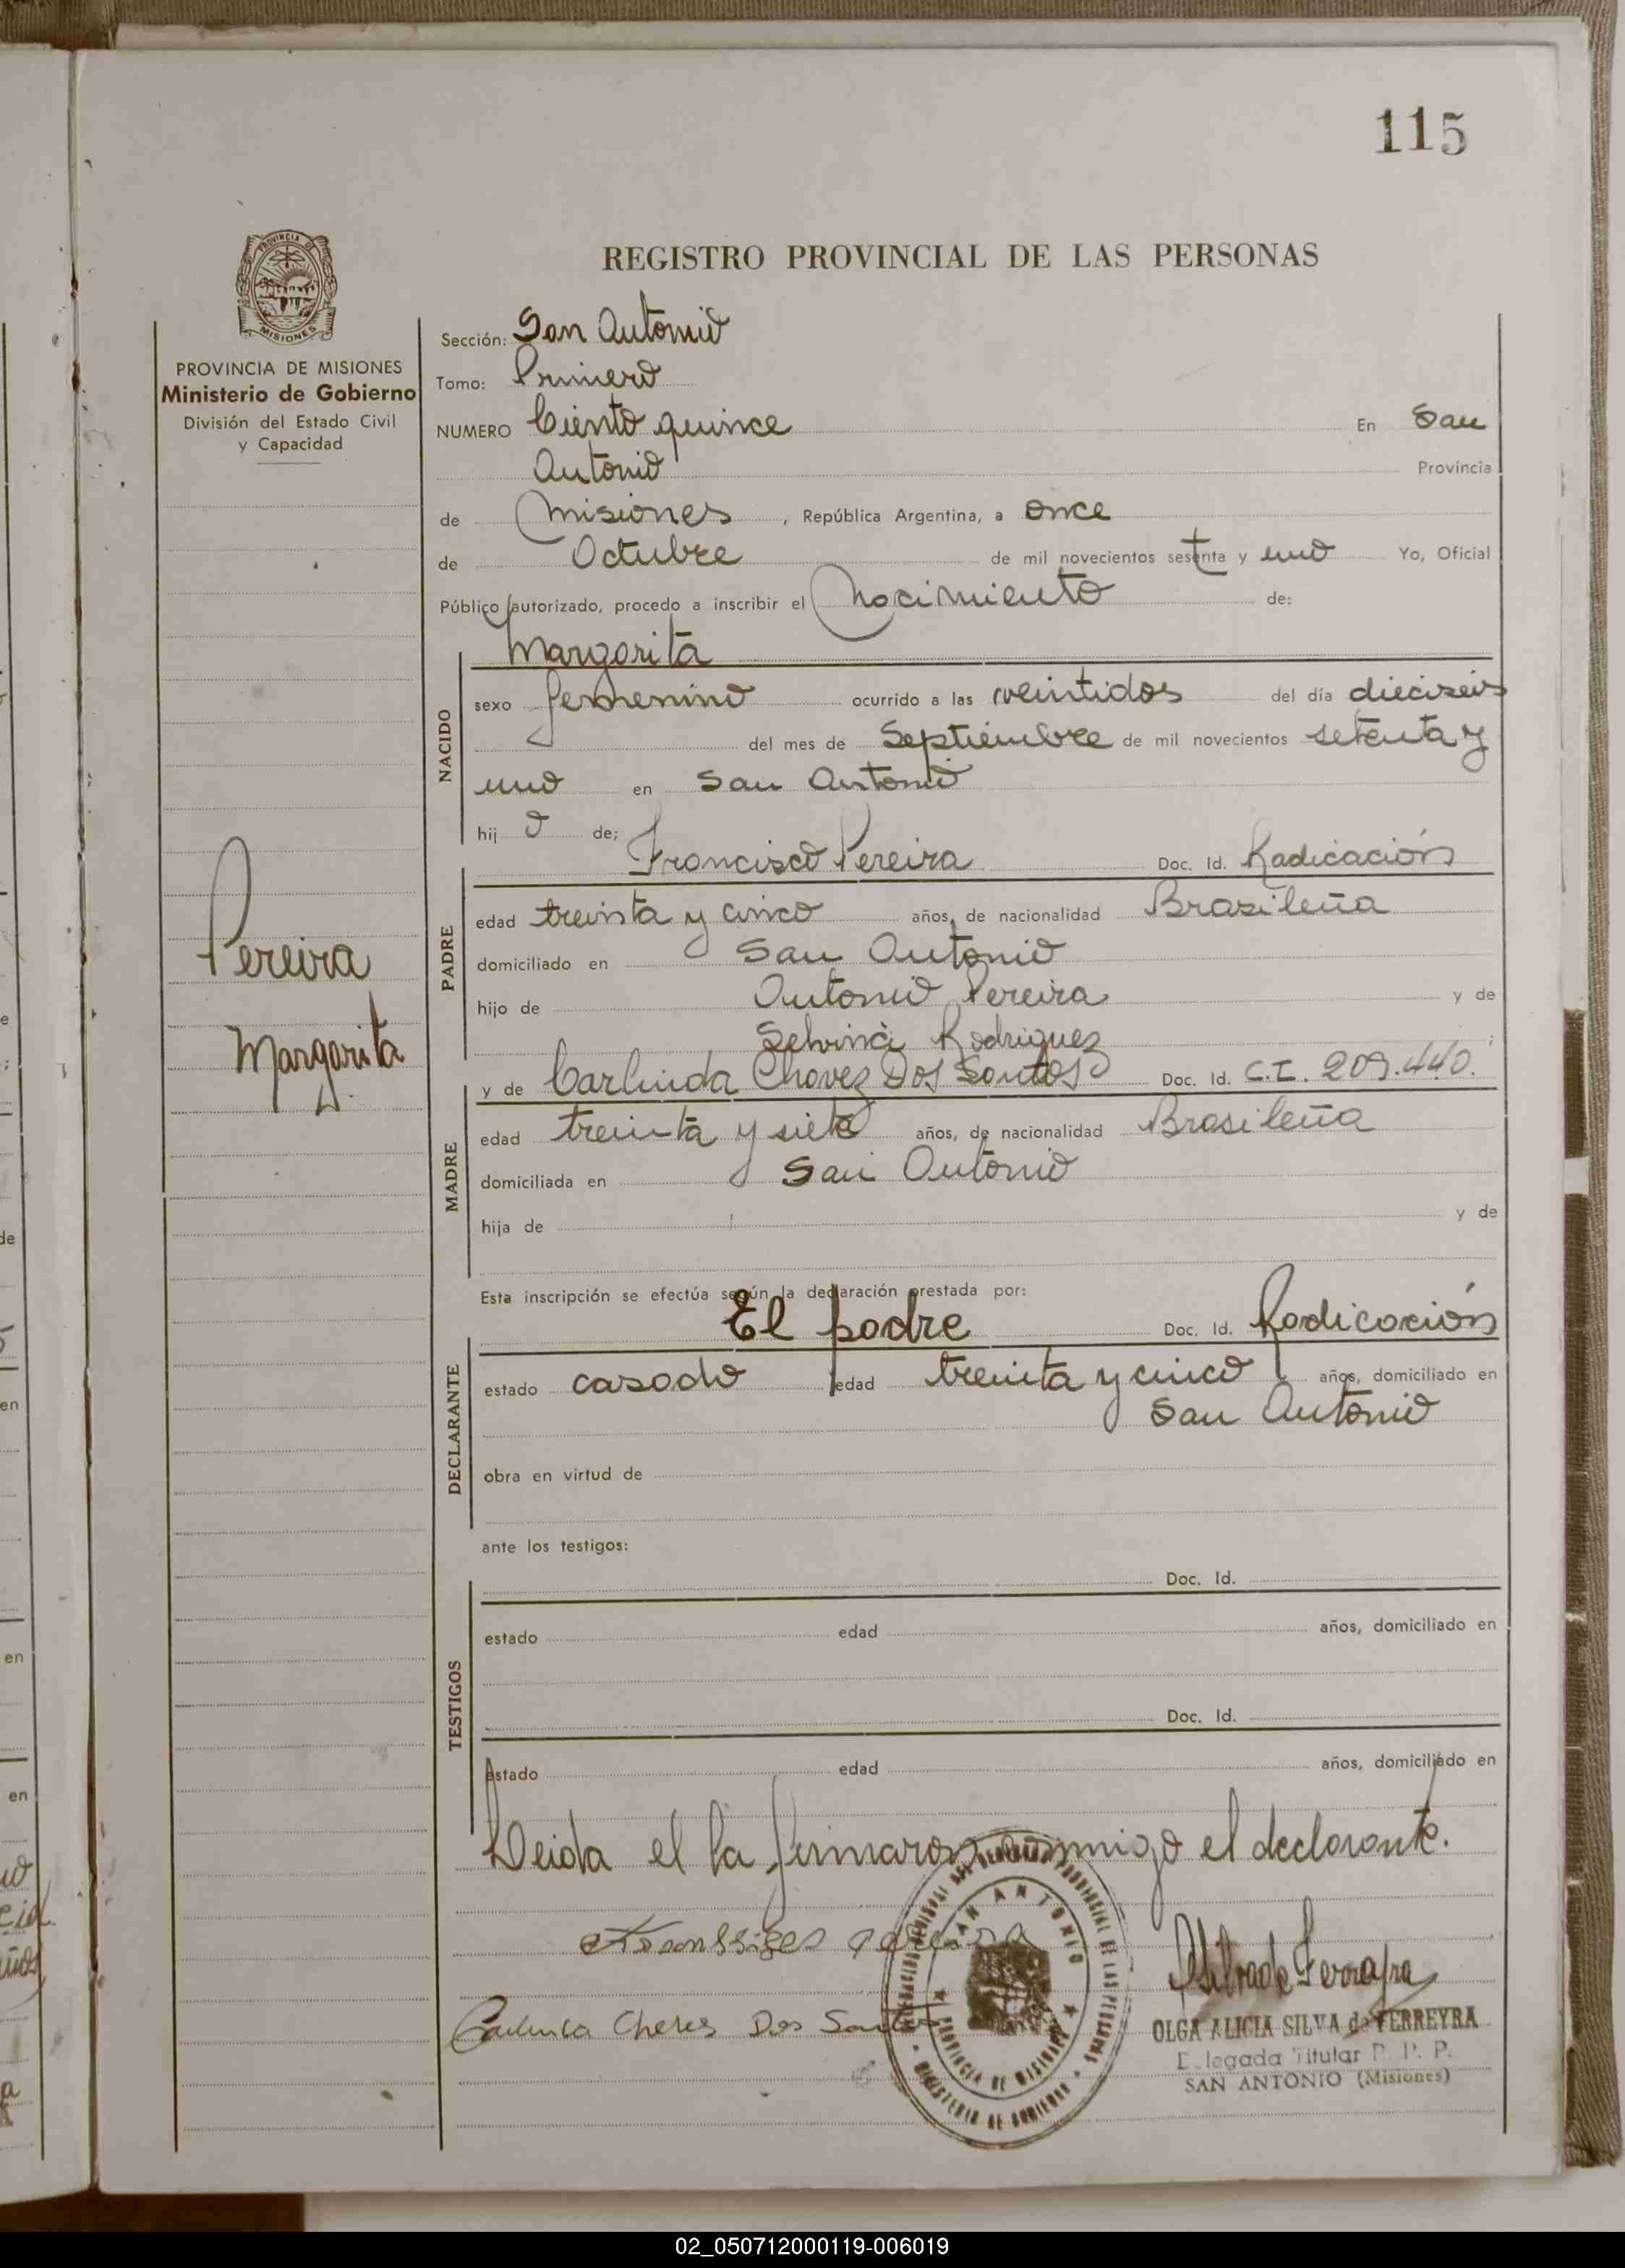 115
REGISTRO PROVINCIAL DE LAS PERSONAS
PROVINCIA DE MISIONES
Ministerio de Gobierno
División del Estado Civil
y Capacidad
Pereira
Margarita
Sección: San Antonio
Tomo: Primero
NUMERO Ciento quince En San
Antonio Provincia
de Misiones, República Argentina, a once
de Octubre de mil novecientos setenta y uno Yo, Oficial
Público autorizado, procedo a inscribir el Nacimiento de:
Margarita
NACIDO
sexo femenino ocurrido a las veintidos del día dieciseis
del mes de Septiembre de mil novecientos setenta y
uno en San Antonio
hij o de;
Francisco Pereira Doc. Id. Radicación
PADRE
edad treinta y cinco años, de nacionalidad Brasileña
domiciliado en San Antonio
hijo de Antonio Pereira y de
Selvina Rodriguez ;
y de Carlinda Chavez Dos Santos Doc. Id. C.I. 209.440.
MADRE
edad treinta y siete años, de nacionalidad Brasileña
domiciliada en San Antonio
hija de y de
Esta inscripción se efectúa según la declaración prestada por:
El padre Doc. Id. Radicación
DECLARANTE
estado casado edad treinta y cinco años, domiciliado en
San Antonio
obra en virtud de
ante los testigos:
Doc. Id.
TESTIGOS
estado edad años, domiciliado en
Doc. Id.
estado edad años, domiciliado en
Leida el la firmaron conmigo el declarante.
SAN ANTONIO
PROVINCIA DE MISIONES
MINISTERIO DE GOBIERNO
Dos Santos
OLGA ALICIA SILVA de FERREYRA
Delegada Titular R. P. P.
SAN ANTONIO (Misiones)
02_050712000119-006019